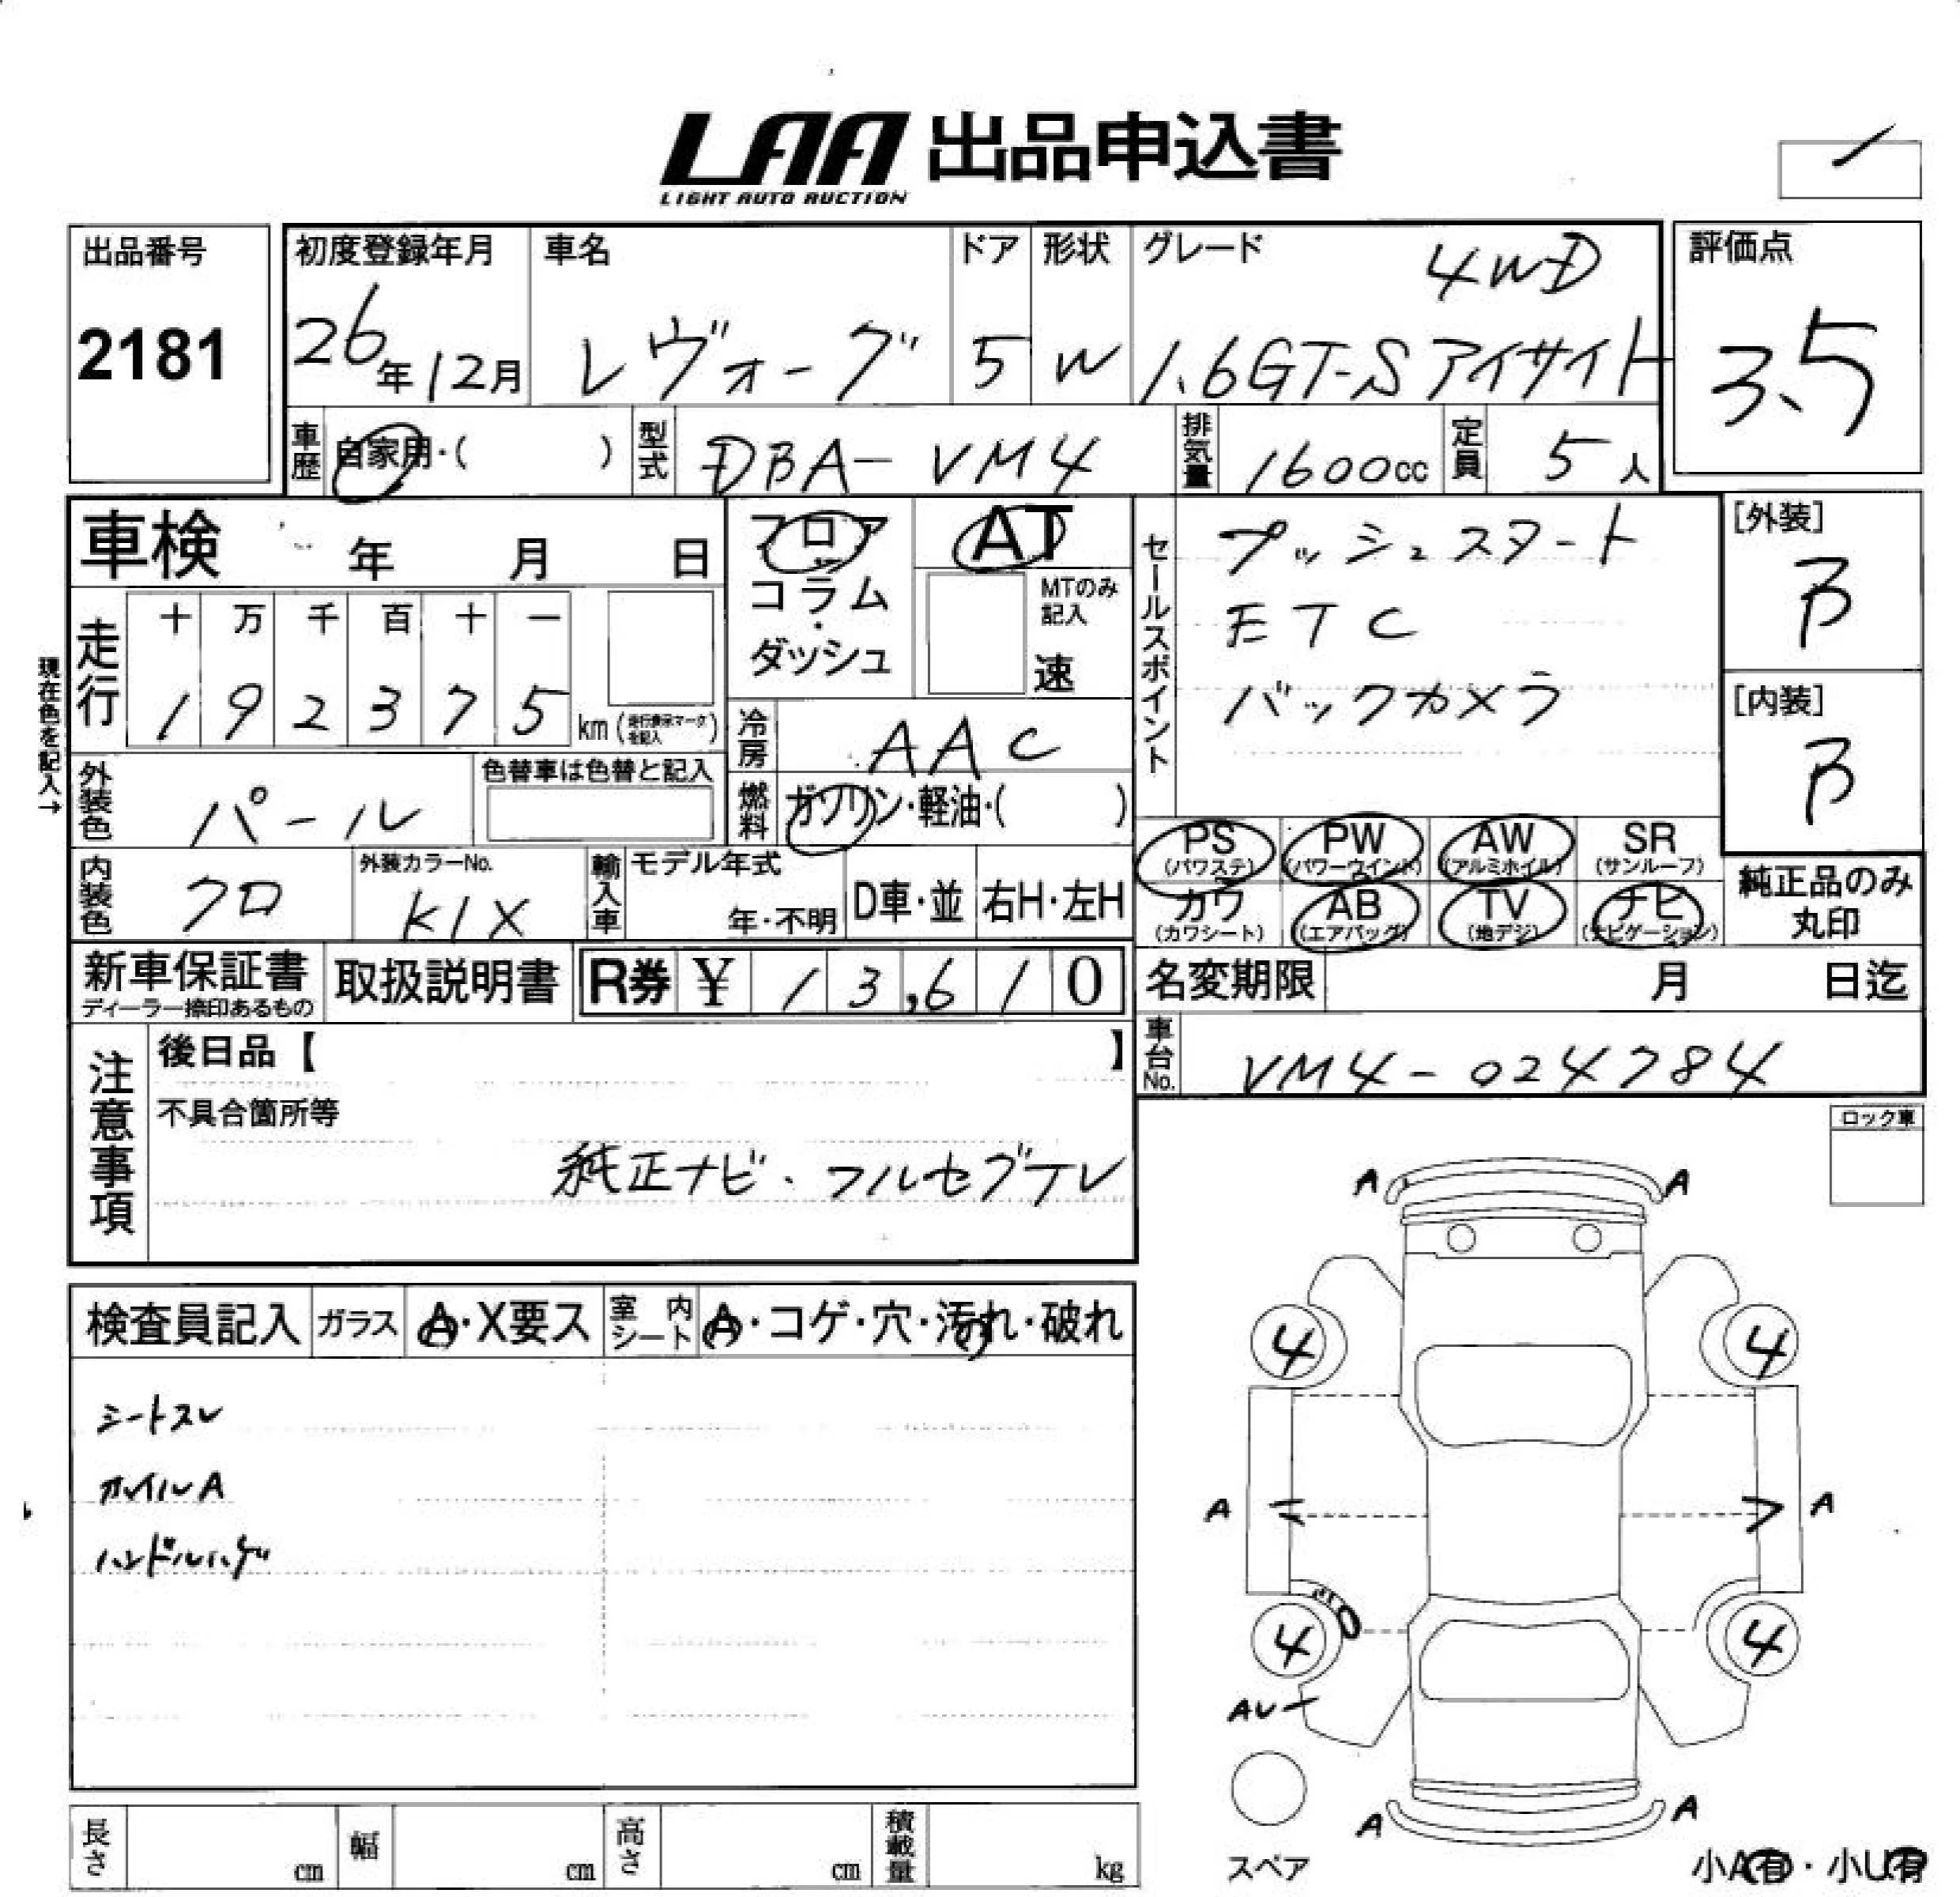 LAA 出品申込書
LIGHT AUTO AUCTION
出品番号
2181
初度登録年月
26年12月
車名
レヴォーグ
ドア
5
形状
W
グレード
4WD
1.6GT-S アイサイト
評価点
3.5
車歴
自家用・( )
型式
DBA-VM4
排気量
1600cc
定員
5人
車検 年 月 日
フロア
コラム
・
ダッシュ
AT
MTのみ
記入
速
セールスポイント
プッシュスタート
ETC
バックカメラ
[外装]
B
[内装]
B
現在色を記入→
走行
十 万 千 百 十 一
1 9 2 3 7 5
km (走行表示マークを記入)
冷房
AAC
外装色
パール
色替車は色替と記入
燃料
ガソリン・軽油・( )
PS
(パワステ)
PW
(パワーウインド)
AW
(アルミホイル)
SR
(サンルーフ)
カワ
(カワシート)
AB
(エアバッグ)
TV
(地デジ)
ナビ
(ナビゲーション)
純正品のみ
丸印
内装色
クロ
外装カラーNo.
K1X
輸入車
モデル年式
年・不明
D車・並
右H・左H
新車保証書
ディーラー捺印あるもの
取扱説明書
R券 ¥ 13,610
名変期限 月 日迄
車台No.
VM4-024784
注意事項
後日品【 】
不具合箇所等
純正ナビ、フルセグTV
ロック車
検査員記入
ガラス
A・X要ス
室内シート
A・コゲ・穴・汚れ・破れ
シートスレ
ホイルA
ハンドルハゲ
A A
4 4
A A
4 4
AU
A A
スペア
小A有・小U有
長さ cm
幅 cm
高さ cm
積載量 kg